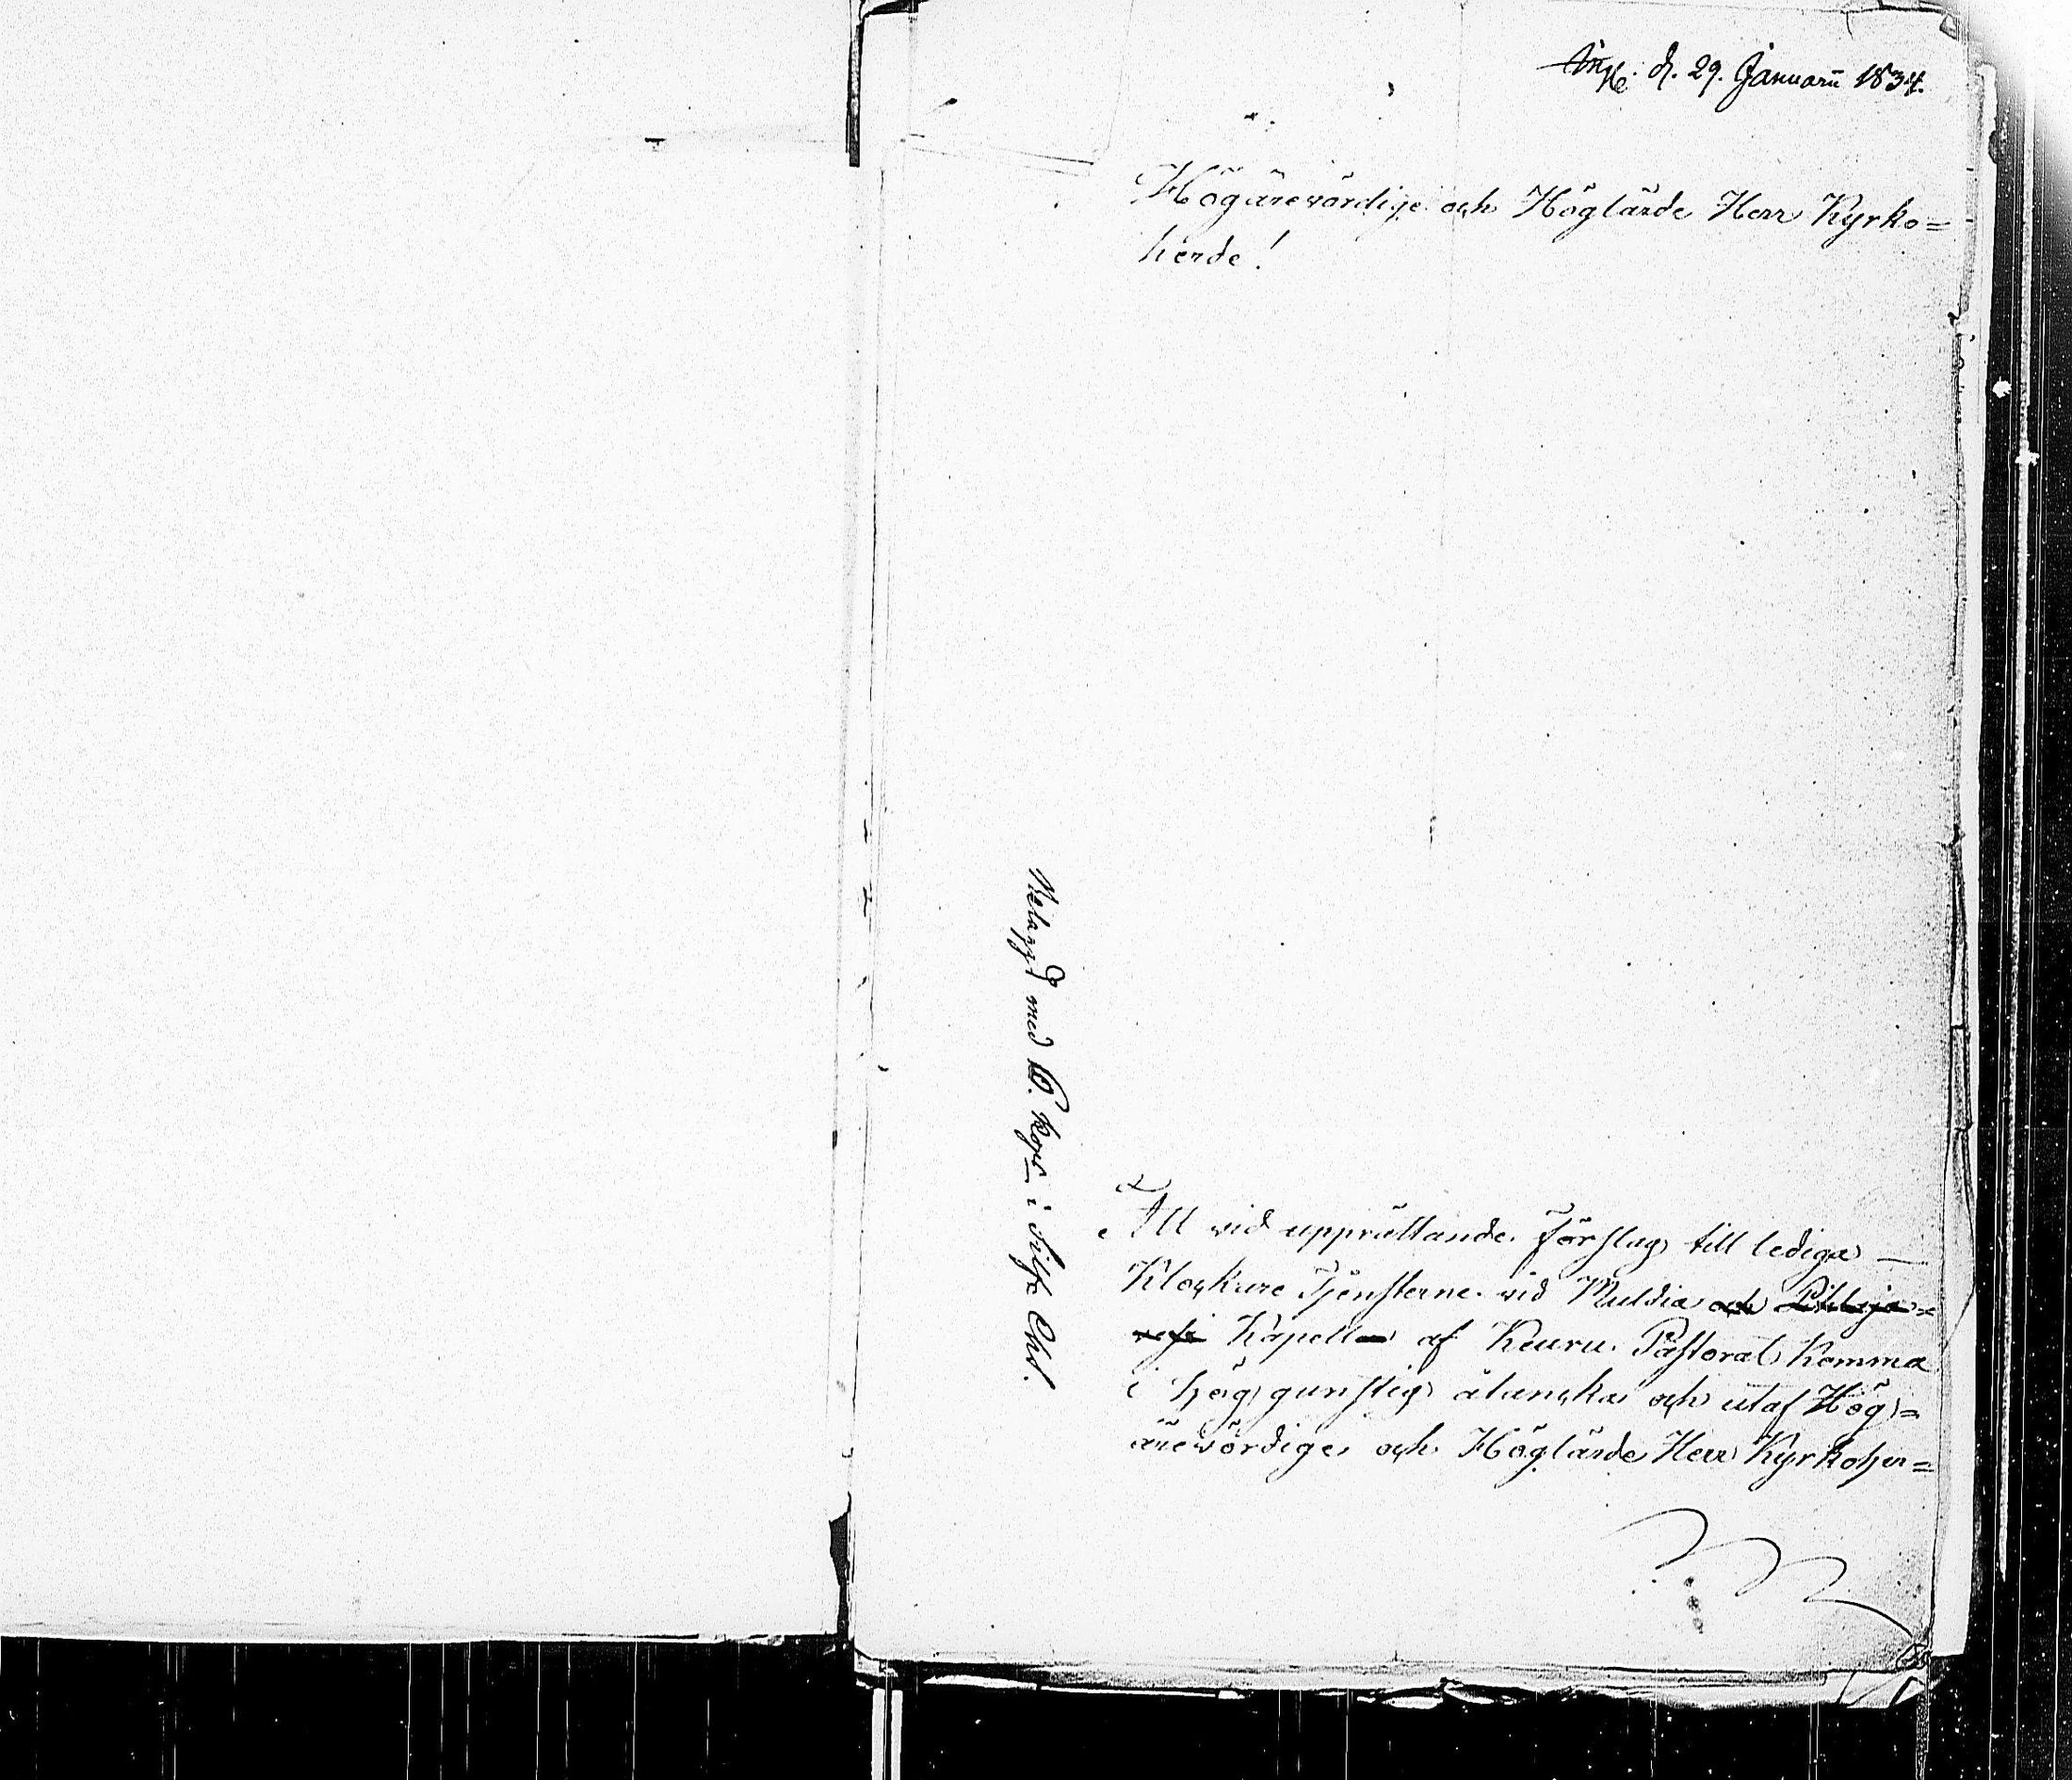 Ink. d. 29. Januarii 1834.
Högärevördige och Höglärde Herr Kyrko=
herde!
Belagd med 10. Kop. i Silfr Chs.
Att vid upprättande förslag till lediga
Klockare Tjensterne vid Multia och Pihlaja=
vesi Kapell af Keuru Pastorat komma
i hög gunstig åtancka och utaf Hög=
ärevördige och Höglärde Herr Kyrkoher=